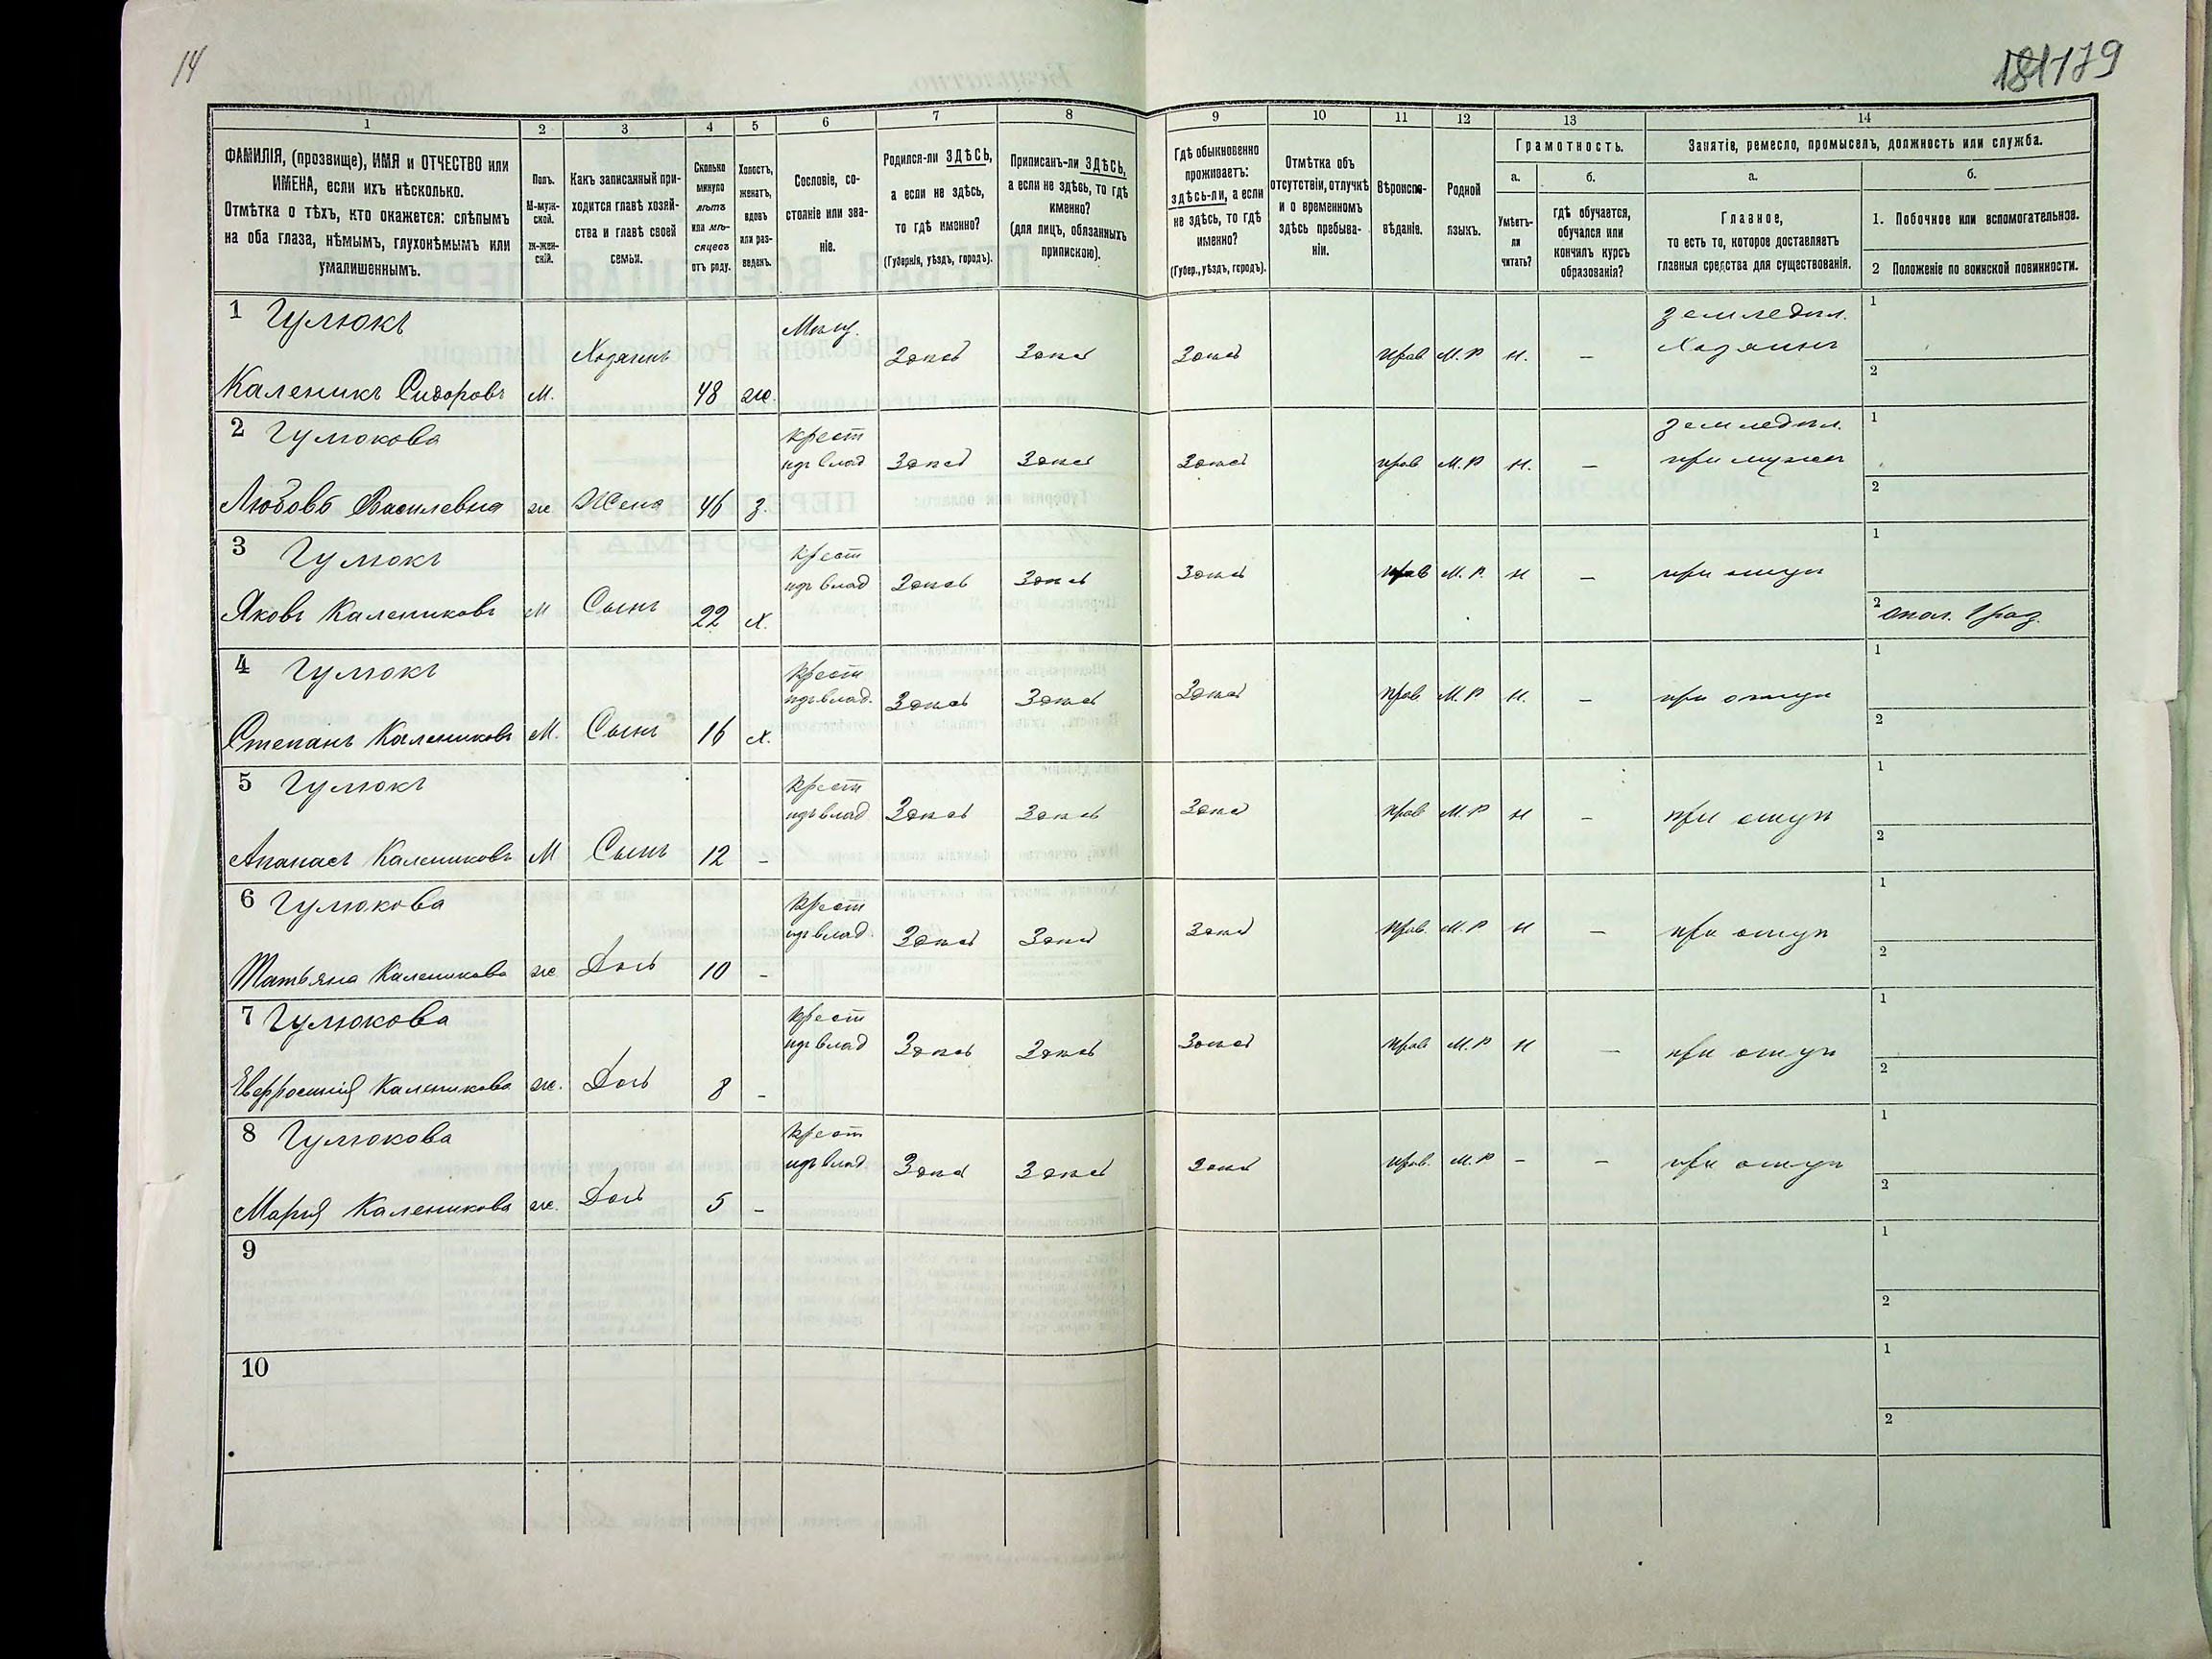 14
181179
1
2
3
4
5
6
7
8
9
10
11
12
13
14
ФАМИЛІЯ, (прозвище), ИМЯ и ОТЧЕСТВО или
ИМЕНА, если ихъ нѣсколько.
Отмѣтка о тѣхъ, кто окажется: слѣпымъ
на оба глаза, нѣмымъ, глухонѣмымъ или
умалишеннымъ.
Полъ.
М-муж-
ской.
ж-жен-
скій.
Какъ записанный при-
ходится главѣ хозяй-
ства и главѣ своей
семьи.
Сколько
минуло
лѣтъ
или мѣ-
сяцевъ
отъ роду.
Холостъ,
женатъ,
вдовъ
или раз-
веденъ.
Сословіе, со-
стояніе или зва-
ніе.
Родился-ли ЗДѢСЬ,
а если не здѣсь,
то гдѣ именно?
(Губернія, уѣздъ, городъ).
Приписанъ-ли ЗДѢСЬ,
а если не здѣсь, то гдѣ
именно?
(для лицъ, обязанныхъ
припискою).
Гдѣ обыкновенно
проживаетъ:
здѣсь-ли, а если
не здѣсь, то гдѣ
именно?
(Губер., уѣздъ, городъ).
Отмѣтка объ
отсутствіи, отлучкѣ
и о временномъ
здѣсь пребыва-
ніи.
Вѣроиспо-
вѣданіе.
Родной
языкъ.
Грамотность.
а.
Умѣетъ-
ли
читать?
б.
гдѣ обучается,
обучался или
кончилъ курсъ
образованія?
Занятіе, ремесло, промыселъ, должность или служба.
а.
Главное,
то есть то, которое доставляетъ
главныя средства для существованія.
б.
1. Побочное или вспомогательное.
2 Положеніе по воинской повинности.
1 Гулюкъ
Каленикъ Сидоровъ
М. Хозяинъ 48 ж. Здѣсь Здѣсь Здѣсь прав М. Р н. – земледѣл.
Хозяинъ
1
2
2 Гулюкова
Любовь Василевна
ж Жена 46 з. крест
идъ влад Здѣсь Здѣсь Здѣсь прав М. Р н. – земледѣл.
при мужѣ
1
2
3 Гулюкъ
Яковъ Калениковъ
М Сынъ 22 х. крест
идъ влад Здѣсь Здѣсь Здѣсь прав М. Р. н – при отцѣ
1
2
4 Гулюкъ
Степанъ Калениковъ
М. Сынъ 16 х. крест
идъ влад. Здѣсь Здѣсь Здѣсь прав. М. Р н. – при отцѣ
1
2
5 Гулюкъ
Апанасъ Калениковъ
М Сынъ 12 – крест
идъ влад Здѣсь Здѣсь Здѣсь прав М. Р н – при отцѣ
1
2
6 Гулюкова
Татьяна Каленикова
ж Дочь 10 – крест
идъ влад. Здѣсь Здѣсь Здѣсь прав. М. Р н – при отцѣ
1
2
7 Гулюкова
Евфросинія Каленикова
ж. Дочь 8 – крест
идъ влад Здѣсь Здѣсь Здѣсь прав М. Р н – при отцѣ
1
2
8 Гулюкова
Марія Каленикова
ж. Дочь 5 – крест
идъ влад. Здѣсь Здѣсь Здѣсь прав. М. Р – – при отцѣ
1
2
9
1
2
10
1
2